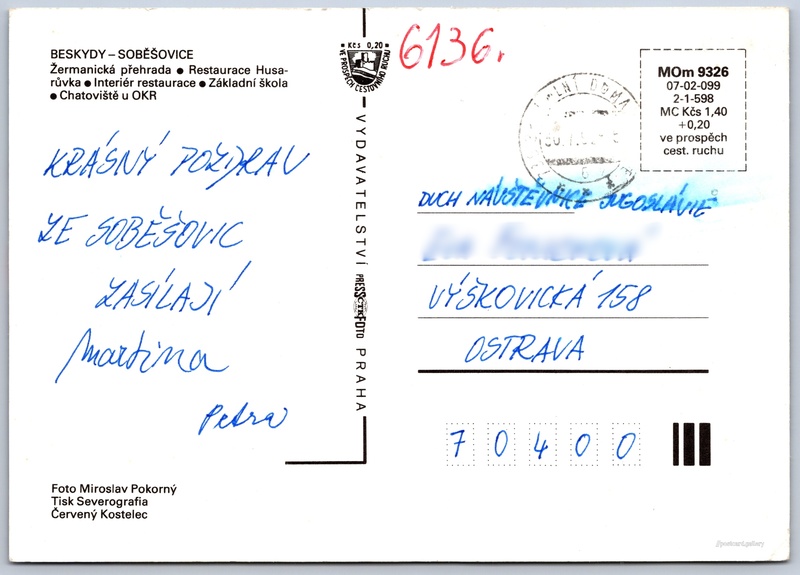 BESKYDY – SOBĚŠOVICE
Žermanická přehrada ● Restaurace Husa-
růvka ● Interiér restaurace ● Základní škola
● Chatoviště u OKR
KRÁSNÝ POZDRAV
ZE SOBĚŠOVIC
ZASÍLAJÍ
Martina
Petra
Foto Miroslav Pokorný
Tisk Severografia
Červený Kostelec
Kčs 0,20
VE PROSPĚCH CESTOVNÍHO RUCHU
VYDAVATELSTVÍ PRESSFOTO PRAHA
6136.
DOLNÍ DOMA
MOm 9326
07-02-099
2-1-598
MC Kčs 1,40
+0,20
ve prospěch
cest. ruchu
DUCH NÁVŠTEVNICE JUGOSLÁVIE
VÝŠKOVICKÁ 158
OSTRAVA
70400